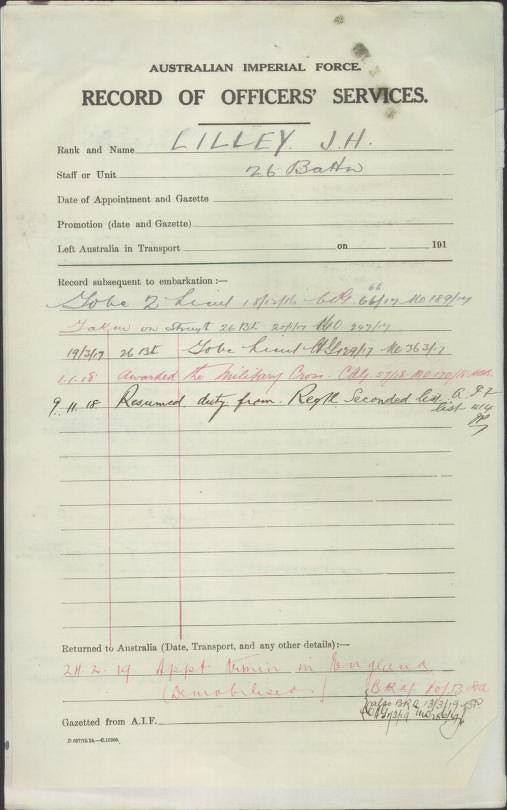 AUSTRALIAN IMPERIAL FORCE.
RECORD OF OFFICERS' SERVICES.
Rank and Name LILLEY J.H.
Staff or Unit 26 Battn
Date of Appointment and Gazette
Promotion (date and Gazette)
Left Australia in Transport on 191
Record subsequent to embarkation :—
To be 2 Lieut 18/12/16 66/17 MO 189/17
Taken on Strength 26 Bt 247/17
19/3/17 26 Bt To be Lieut 129/17 MO 363/17
1.1.18 Awarded the Military Cross. CAG 57/18 MO 170/18
9.11.18 Resumed duty from Regtl Seconded list. A.I.F
list 414
Returned to Australia (Date, Transport, and any other details):—
24.2.19 Appt termin in England
(Demobilised)
13/3/19
Gazetted from A.I.F.